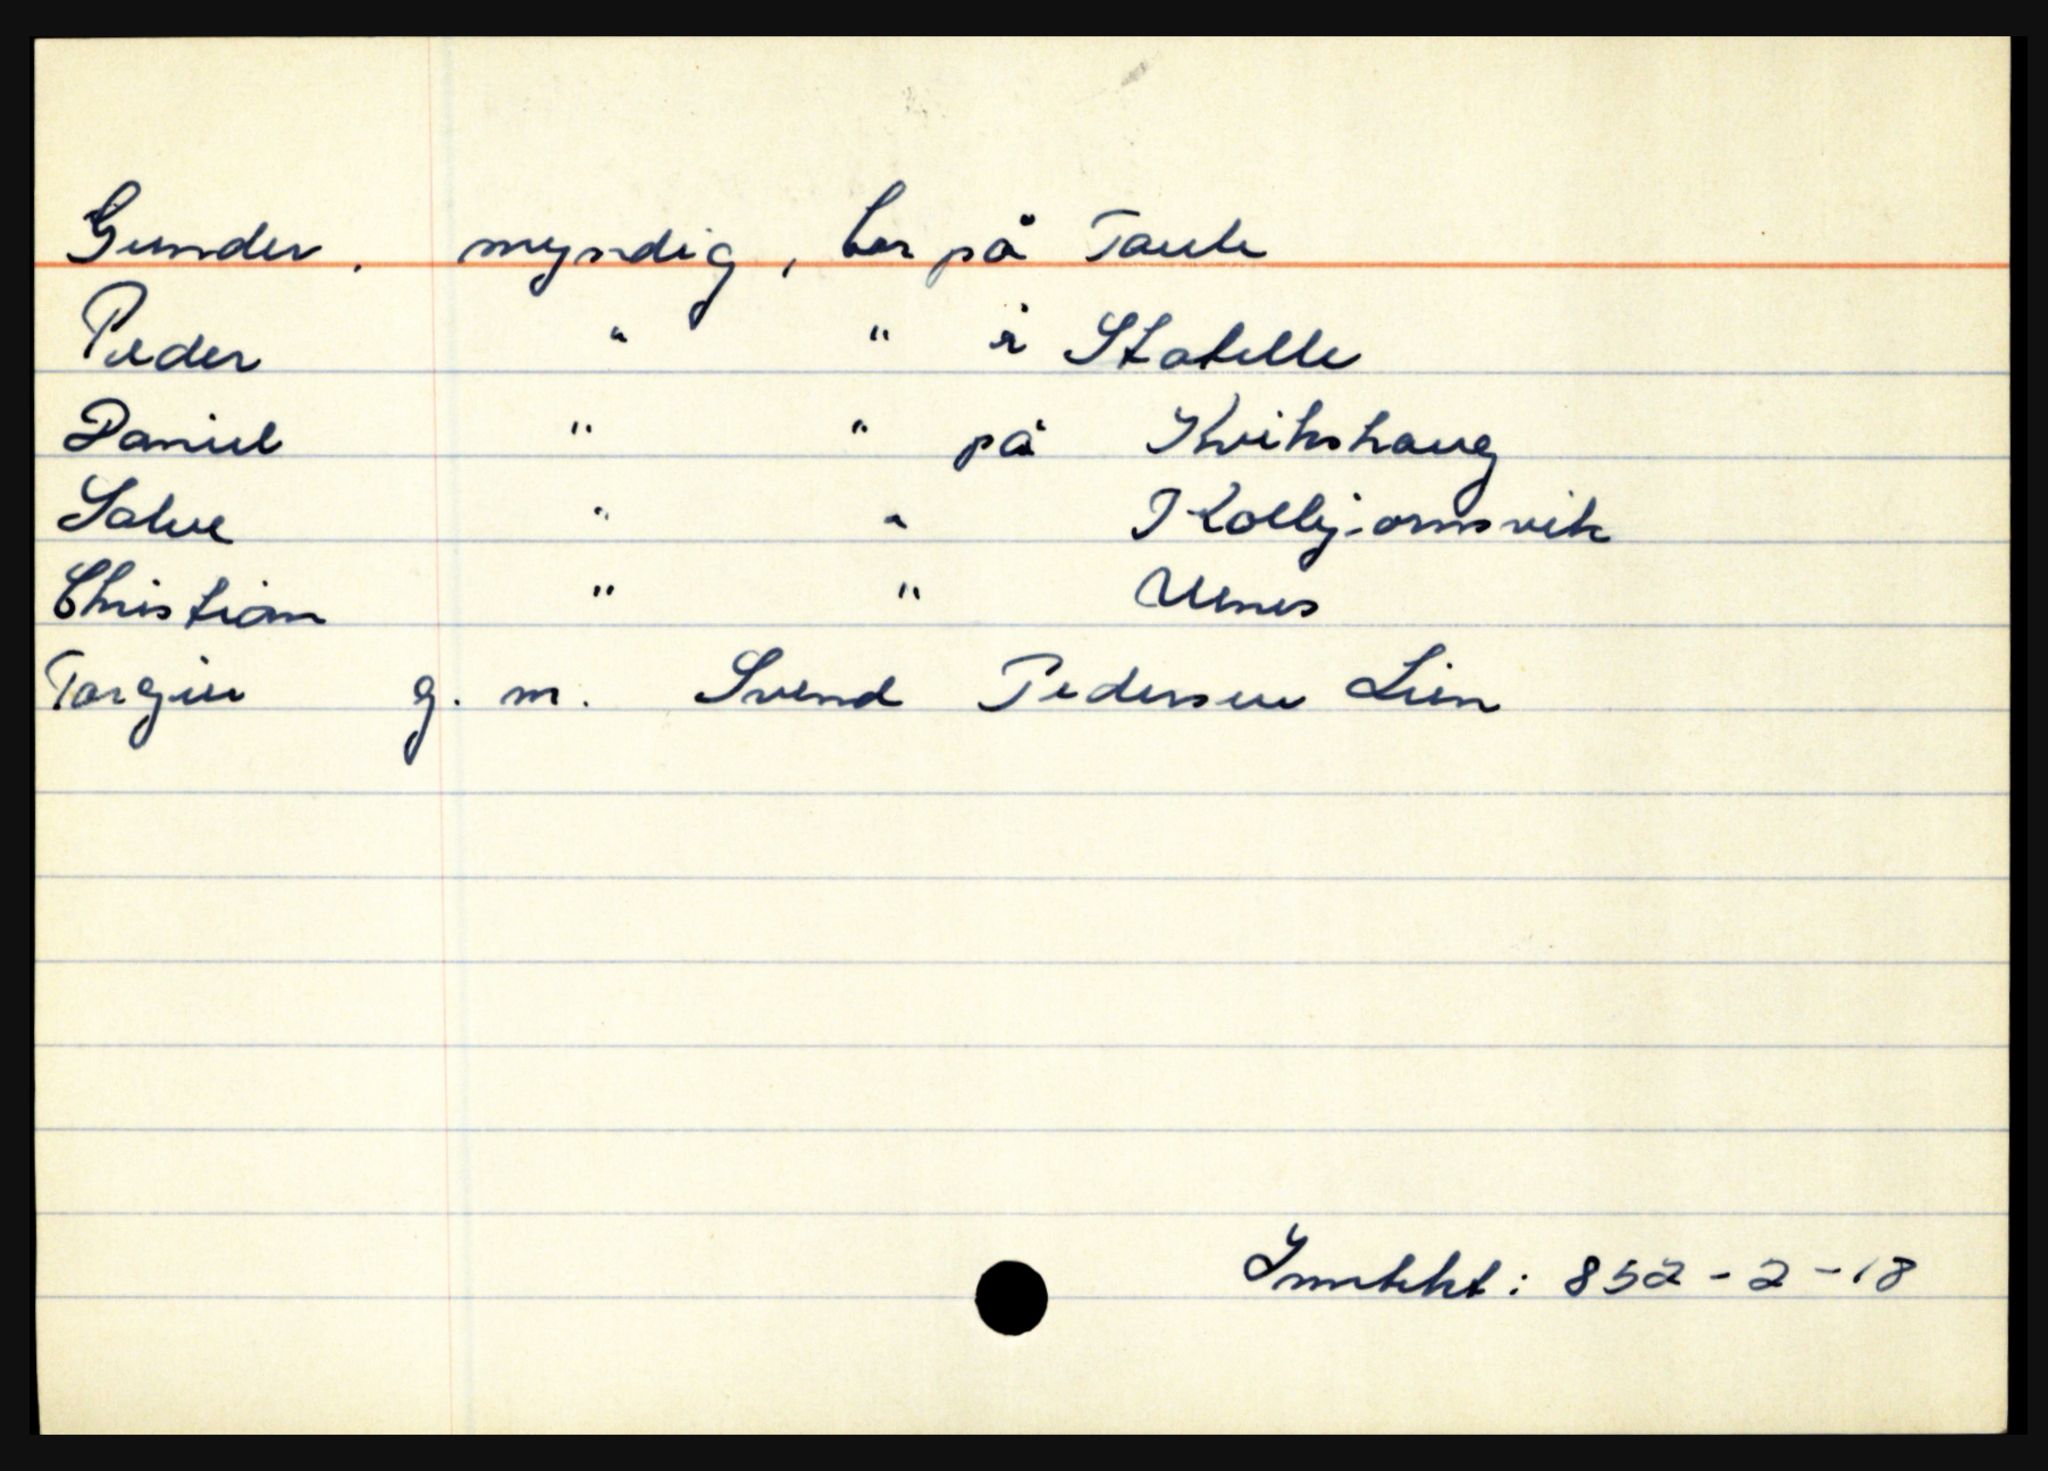 Gunder, myndig, bor på Taule
Peder " " i Statelle
Daniel " " på Kvikshaug
Salve " " Kolbjørnsvik
Christian " " Uenes
Torgier g. m. Svend Pedersen Lien
Inntekt: 852 - 2 - 18